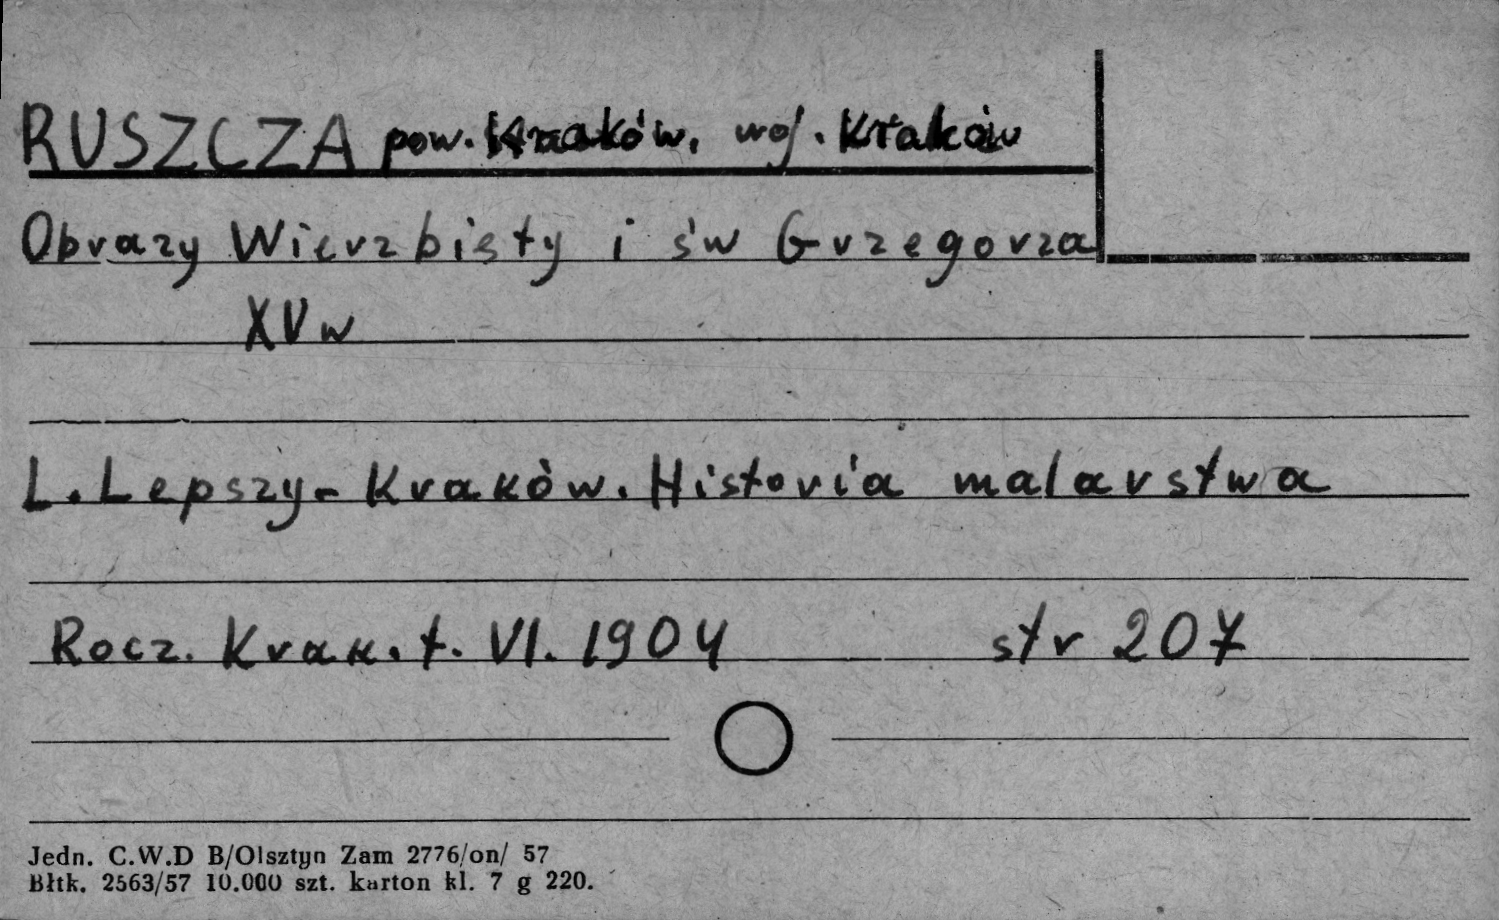 RUSZCZA pow. Kraków, woj. Kraków
Obrazy Wierzbięty i św Grzegorza
XV w
L. Lepszy - Kraków. Historia malarstwa
Rocz. Krak. t. VI. 1904 str 207
Jedn. C.W.D B/Olsztyn Zam 2776/on/ 57
Błtk. 2563/57 10.000 szt. karton kl. 7 g 220.